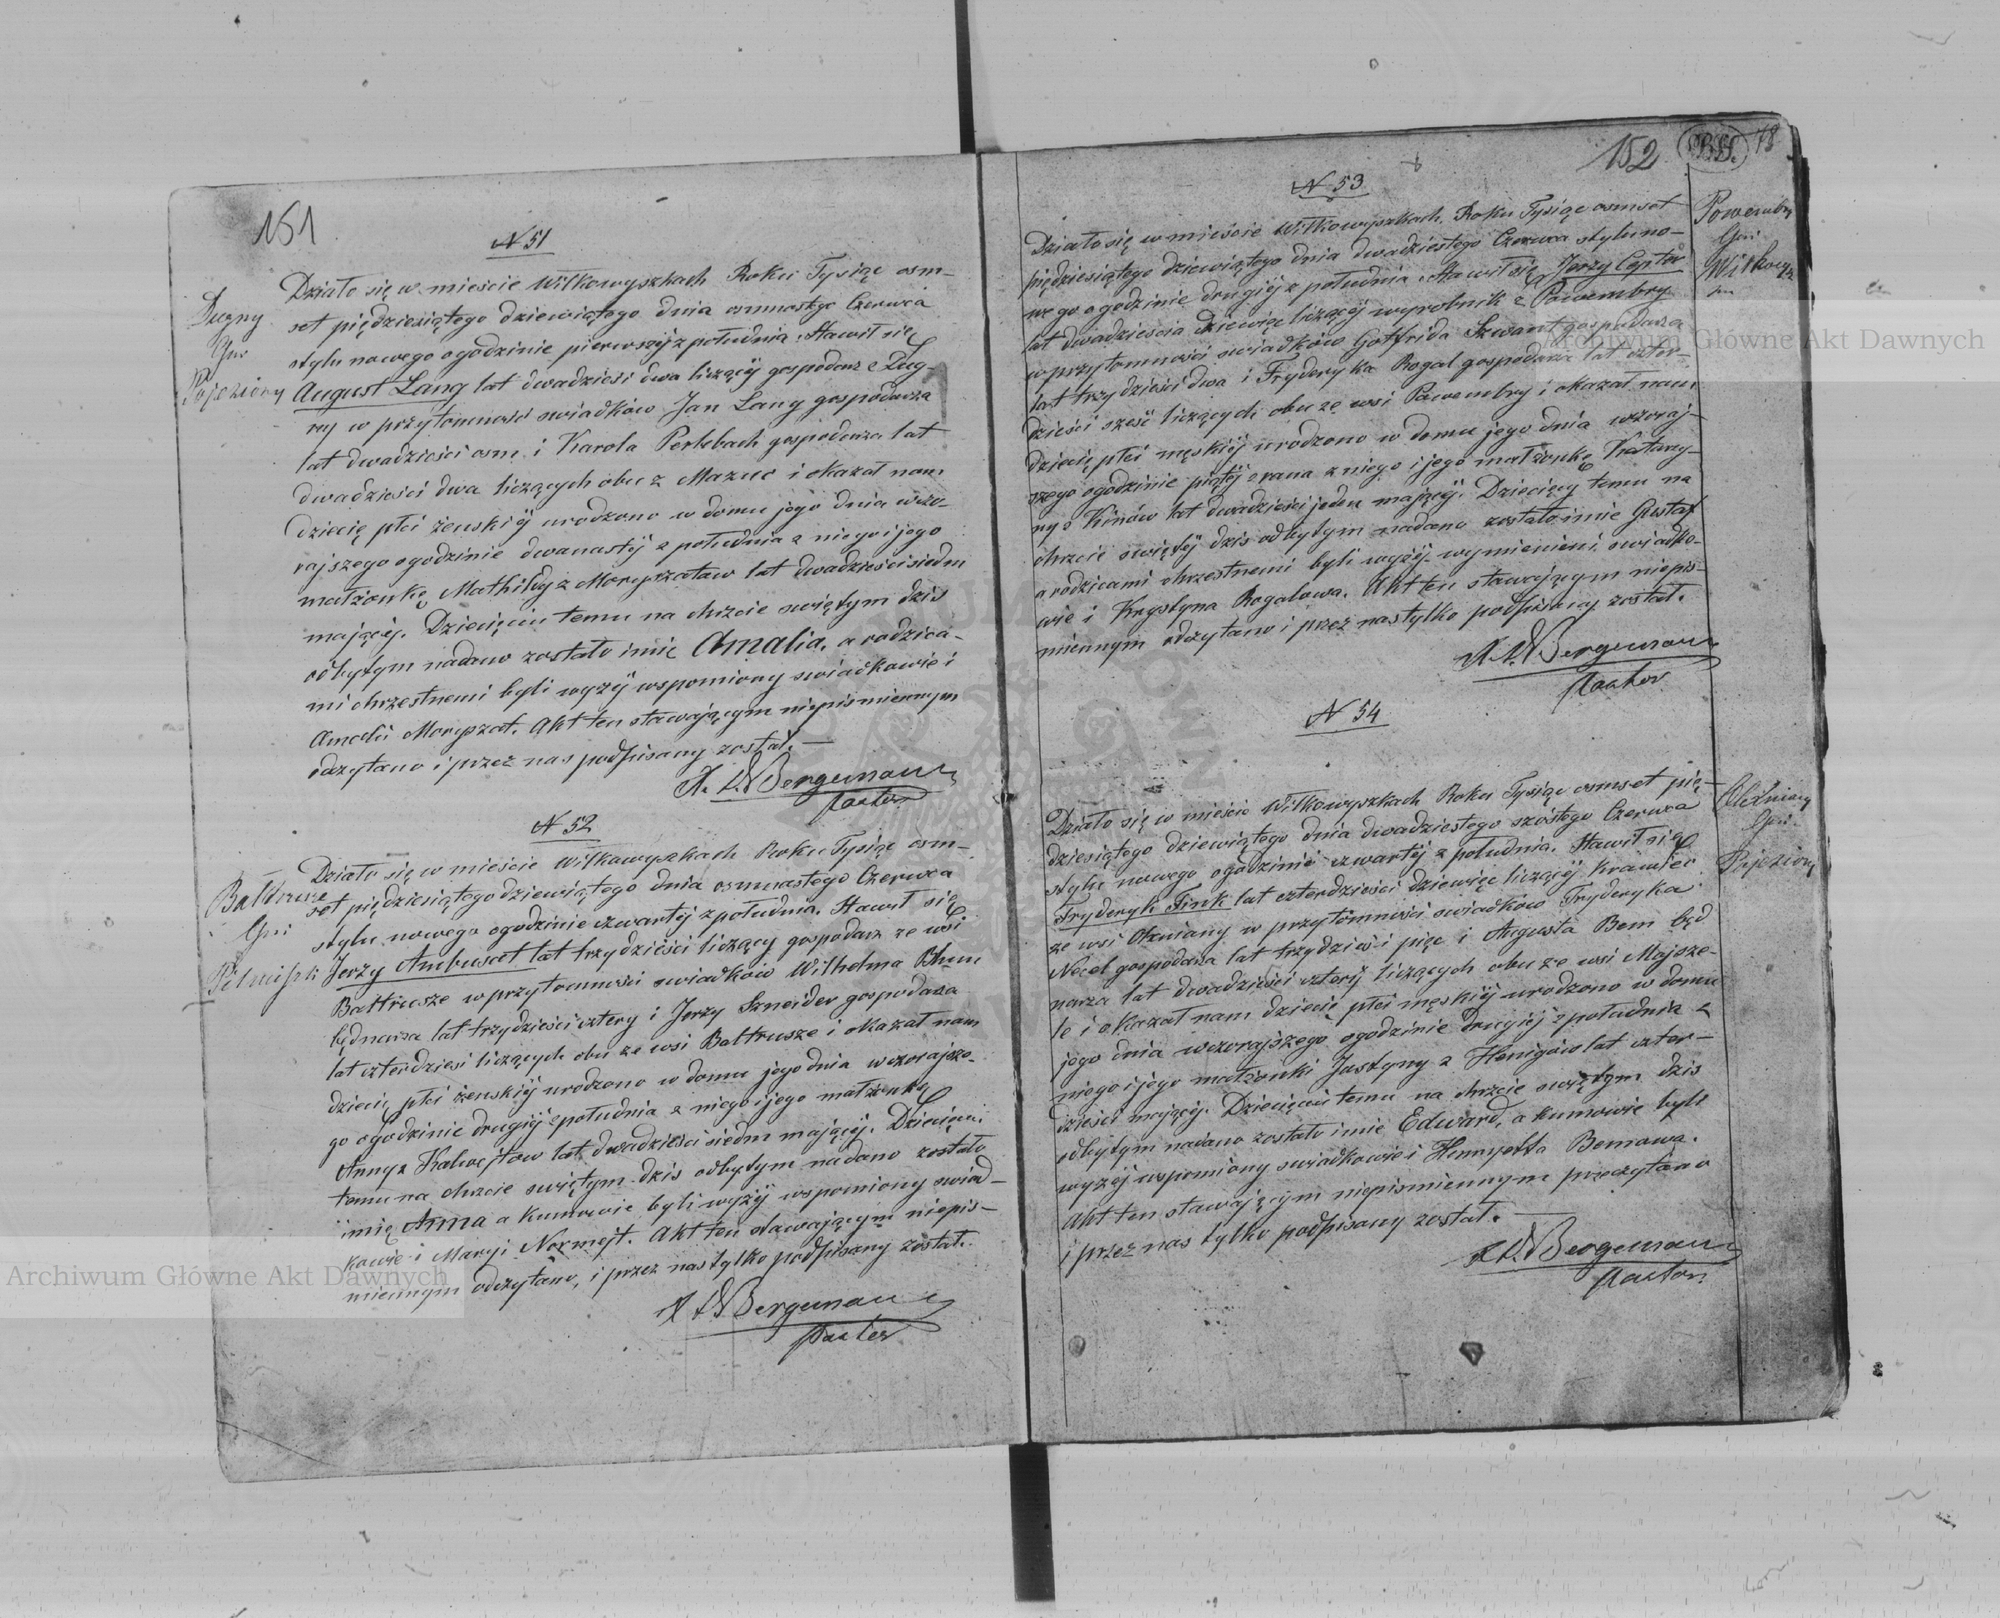 151
N 51
Dugny
Gmi
Pojeziory
Działo się w mieście Wiłkowyszkach Roku Tysiąc osm-
set pięćdziesiątego dziewiątego dnia osmnastego Czerwca
stylu nowego o godzinie pierwszej z południa. Stawił się
August Lang lat dwadzieści dwa liczący gospodarz z Dug-
ny w przytomność swiadków Jan Lang gospodarza
lat dwadzieści osm i Karola Perlebach gospodarza lat
dwadzieści dwa liczących obu z Mazuc i okazał nam
dziecię płci żenskiej urodzono w domu jego dnia wczo-
rajszego o godzinie dwanastej z południa z niego i jego
małżonkę Mathildy z Moryszatów lat dwadzieści siedm
mającej. Dziecięciu temu na chrzcie swiętym dzis
odbytym nadano zostało imie Amalia, a rodzica-
mi chrzestnemi byli wyżej wspomiony swiadkowie i
Amelii Moryszat. Akt ten stawającym niepismiennym
odczytano i przez nas podpisany został.
Bergemann
Pastor
N 52
Bałtrusze
Gmi
Działo się w mieście Wiłkowyszkach Roku Tysiąc osm-
set pięćdziesiątego dziewiątego dnia osmnastego Czerwca
stylu nowego o godzinie czwartej z południa. Stawił się
Jerzy Ambusat lat trzydzieści liczący gospodarz ze wsi
Bałtrusze w przytomności swiadków Wilhelma Blum
będnarza lat trzydzieści cztery i Jerzy Szneider gospodarza
lat czterdziesi liczących obu ze wsi Bałtrusze i okazał nam
dziecię płci żenskiej urodzono w domu jego dnia wczorajsze-
go o godzinie drugiej z południa z niego i jego małżonkę
Anny z Kalwejtow lat dwadzieści siedm mającej. Dziecięciu
temu na chrzcie swiętym dzis odbytym nadano zostało
imię Anna a kumowie byli wyżej wspomiony swiad-
kowie i Maryi Normejt. Akt ten stawającym niepis-
miennym odczytano, i przez nas tylko podpisany został.
Bergemann
Pastor
152
78
N 53
Powembry
Gmi
Działo się w mieście Wiłkowyszkach Roku Tysiąc osmset
pięćdziesiątego dziewiątego dnia dwadziestego Czerwca stylu no-
wego o godzinie drugiej z południa. Stawił się Jerzy
lat dwadzieścia dziewięc liczący wyrobnik z Pawembry
w przytomności swiadków Gottfrida Szwant gospodarza
lat trzydzieści dwa i Fryderyka Rogal gospodarza lat czter-
dzieści sześć liczących obu ze wsi Pawembry i okazał nam
dziecię płci męskiej urodzono w domu jego dnia wczoraj-
szego o godzinie piątej z rana z niego i jego małżonkę Katary-
ny z Kinów lat dwadzieści jeden mającej. Dziecięcy temu na
chrzcie swiętej dzis odbytym nadano zostało imie Gustaf
a rodzicami chrzestnemi byli wyżej wymienieni swiadko-
wie i Krystyna Rogalowa. Akt ten stawającym niepis-
miennym odczytano i przez nas tylko podpisany został.
Bergemann
Pastor
N 54
Gmi
Pojeziory
Działo się w mieście Wiłkowyszkach Roku Tysiąc osmset pię-
dziesiątego dziewiątego dnia dwadziestego szóstego Czerwca
stylu nowego o godzinie czwartej z południa. Stawił się
Fryderyk Fink lat czterdzieści dziewięc liczący kramler
ze wsi Olzniany w przytomności swiadków Fryderyka
Necel gospodarza lat trzydzieści pięc i Augusta Bem będ
narza lat dwadzieści cztery liczących obu ze wsi Majsze-
le i okazał nam dziecię płci męskiej urodzono w domu
jego dnia wczorajszego o godzinie drugiej z południa z
niego i jego małżonki Justyny z Henigów lat czter-
dzieści mającej. Dziecięciu temu na chrzcie swiętym dzis
odbytym nadano zostało imie Edward, a kumowie byli
wyżej wspomiony swiadkowie i Henryetta Bemowa.
Akt ten stawającym niepismiennym przeczytano
i przez nas tylko podpisany został.
Bergemann
Pastor
Archiwum Główne Akt Dawnych
Archiwum Główne Akt Dawnych